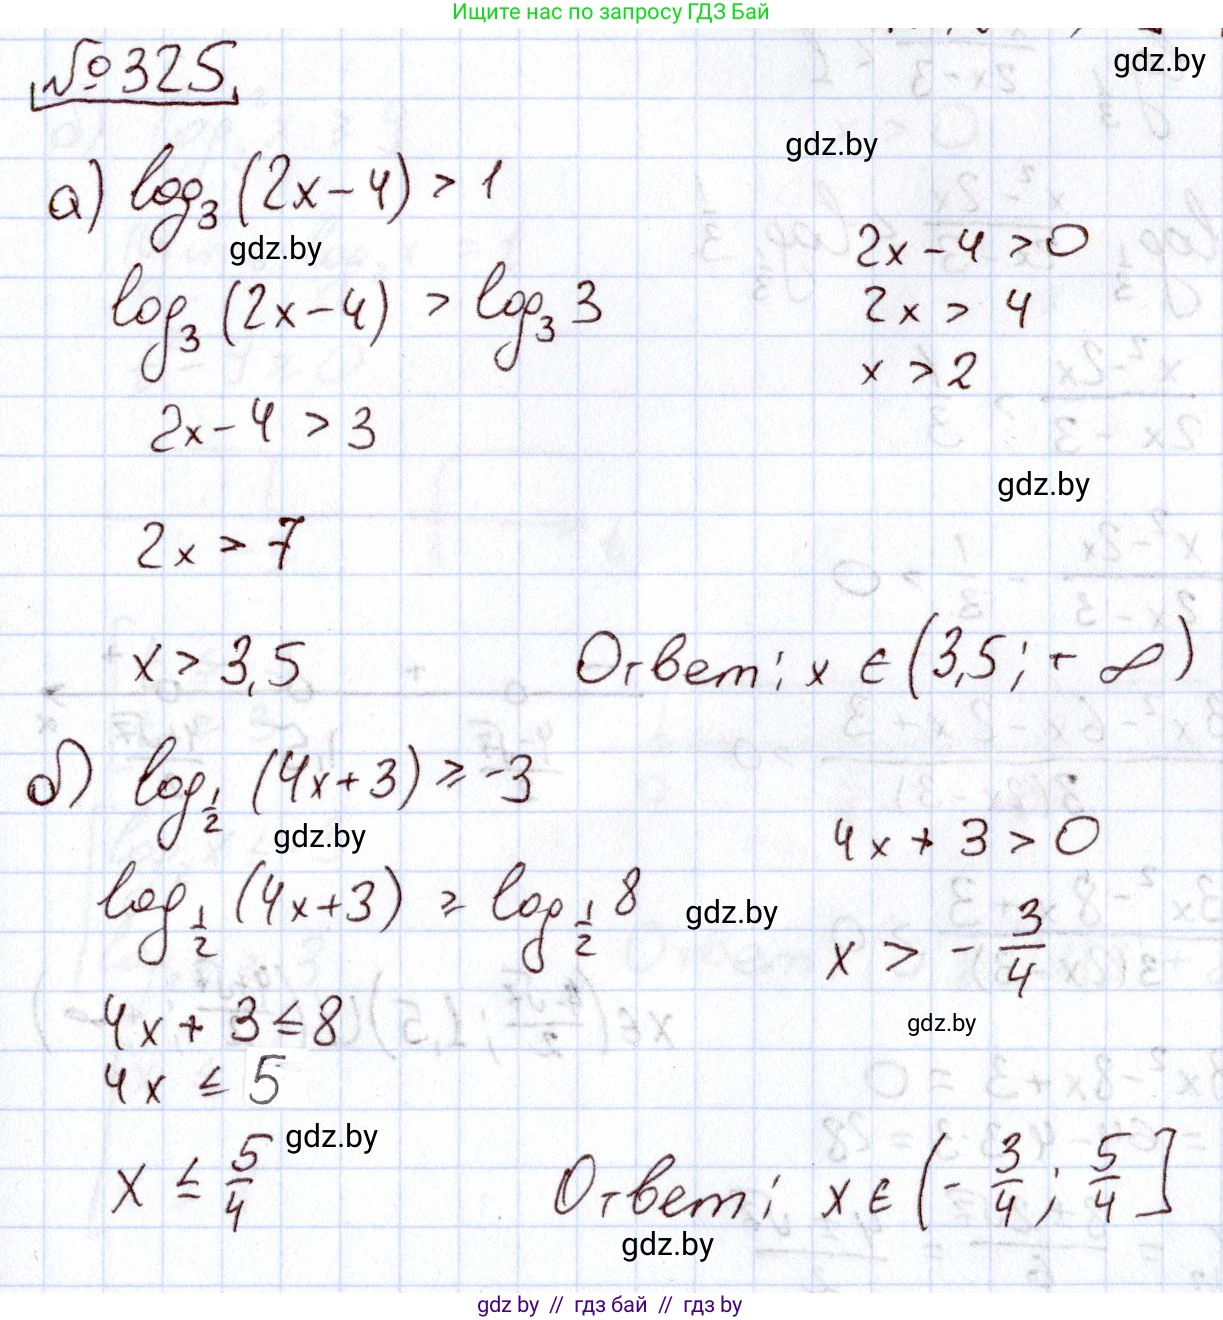 Ищите нас по запросу ГДЗ Бай
gdz.by
№325
gdz.by
а) log₃ (2x - 4) > 1
gdz.by
2x - 4 > 0
log₃ (2x - 4) > log₃ 3
2x > 4
x > 2
2x - 4 > 3
gdz.by
2x > 7
x > 3,5
Ответ: x ∈ (3,5; + ∞)
б) log_{1/2} (4x + 3) ≥ -3
gdz.by
4x + 3 > 0
log_{1/2} (4x + 3) ≥ log_{1/2} 8
gdz.by
x > - 3/4
4x + 3 ≤ 8
gdz.by
4x ≤ 5
gdz.by
x ≤ 5/4
Ответ: x ∈ (- 3/4; 5/4]
gdz.by
gdz by // гдз бай // гдз by